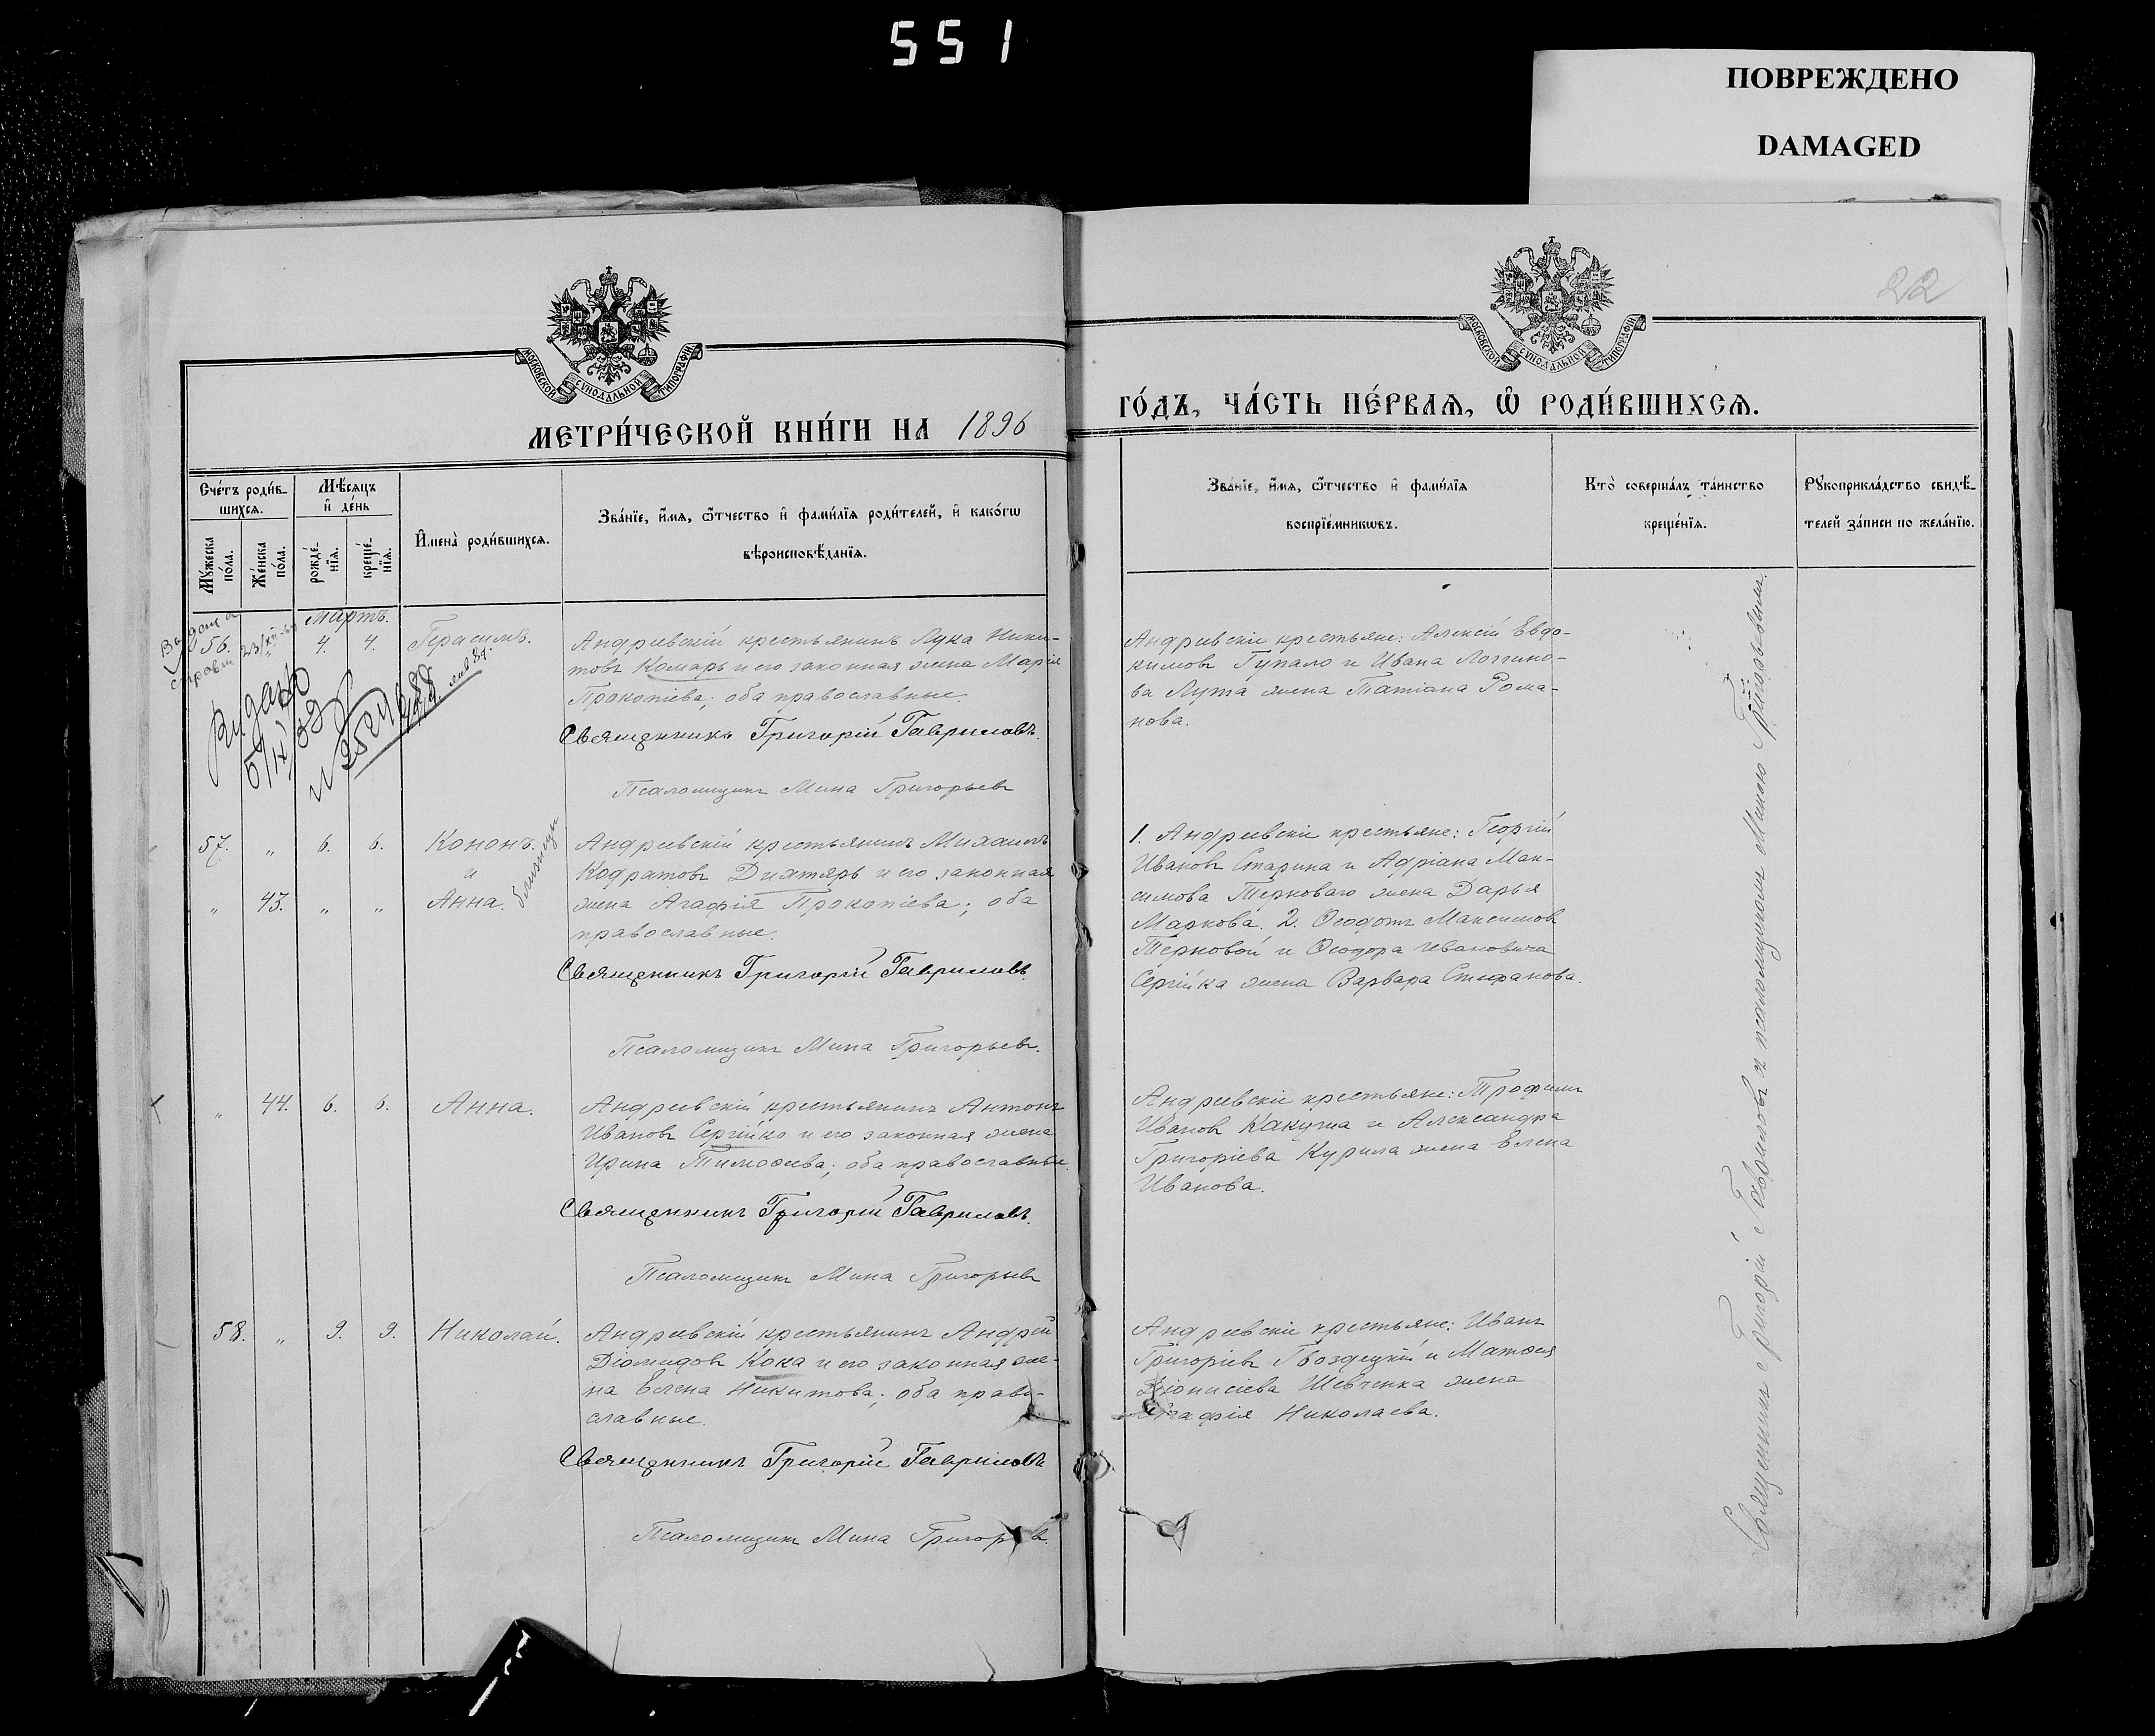 551
ПОВРЕЖДЕНО
DAMAGED
22
МОСКОВСКОЙ СѴНОДАЛЬНОЙ ТИПОГРАФІИ
МОСКОВСКОЙ СѴНОДАЛЬНОЙ ТИПОГРАФІИ
МЕТРИ́ЧЕСКОЙ КНИ́ГИ НА 1896
ГО́ДЪ, ЧА́СТЬ ПЕ́РВАѦ, Ѡ҆ РОДИ́ВШИХСѦ.
Сче́тъ роди́в-
шихсѧ.
Мꙋ́жеска по́ла.
Же́нска по́ла.
Мѣ́сѧцъ
и҆ де́нь
рожде́-
нїѧ.
креще́-
нїѧ.
И҆мена̀ роди́вшихсѧ.
Зва́нїе, и҆́мѧ, ѻ҆́тчество и҆ фами́лїѧ роди́телей, и҆ како́гѡ
вѣроисповѣ́данїѧ.
Зва́нїе, и҆́мѧ, ѻ҆́тчество и҆ фами́лїѧ
воспрїе́мникѡвъ.
Кто̀ соверша́лъ та́инство
креще́нїѧ.
Рꙋкоприкла́дство свидѣ́-
телей за́писи по жела́нїю.
Мартъ.
Выдана
справка
56. 4. 4. Герасимъ.
Андреевскій крестьянинъ Лука Ники-
товъ Комарь и его законная жена Марія
Прокопіева; оба православные.
Священникъ Григорій Гавриловъ.
Псаломщикъ Мина Григорьевъ
Андреевскіе крестьяне: Алексій Евдо-
кимовъ Гупало и Ивана Логгино-
ва Лута жена Татіана Рома-
нова.
57. „ 6. 6. Кононъ.
и
„ 43. „ „ Анна. близнецы
Андреевскій крестьянинъ Михаилъ
Кодратовъ Дихтярь и его законная
жена Агафія Прокопіева; оба
православные.
Священникъ Григорій Гавриловъ.
Псаломщикъ Мина Григорьевъ.
1. Андреевскіе крестьяне: Георгій
Ивановъ Старина и Адріана Мак-
симова Терноваго жена Дарья
Маркова. 2. Ѳеодотъ Максимовъ
Терновой и Ѳеодора Ивановича
Сергійка жена Варвара Стефанова.
„ 44. 6. 6. Анна.
Андреевскій крестьянинъ Антонъ
Ивановъ Сергійко и его законная жена
Ирина Тимоѳеева; оба православные.
Священникъ Григорій Гавриловъ.
Псаломщикъ Мина Григорьевъ
Андреевскіе крестьяне: Трофимъ
Ивановъ Какуша и Александра
Григоріева Курила жена Елена
Иванова.
58. „ 9. 9. Николай.
Андреевскій крестьянинъ Андрей
Діомидовъ Кока и его законная же-
на Елена Никитова; оба право-
славные.
Священникъ Григорій Гавриловъ
Псаломщикъ Мина Григорьевъ.
Андреевскіе крестьяне: Иванъ
Григоріевъ Гвоздецкій и Матѳея
Діонисіева Шевченка жена
Агафія Николаева.
Священникъ Григорій Гавриловъ и псаломщикомъ Миною Григорьевымъ.